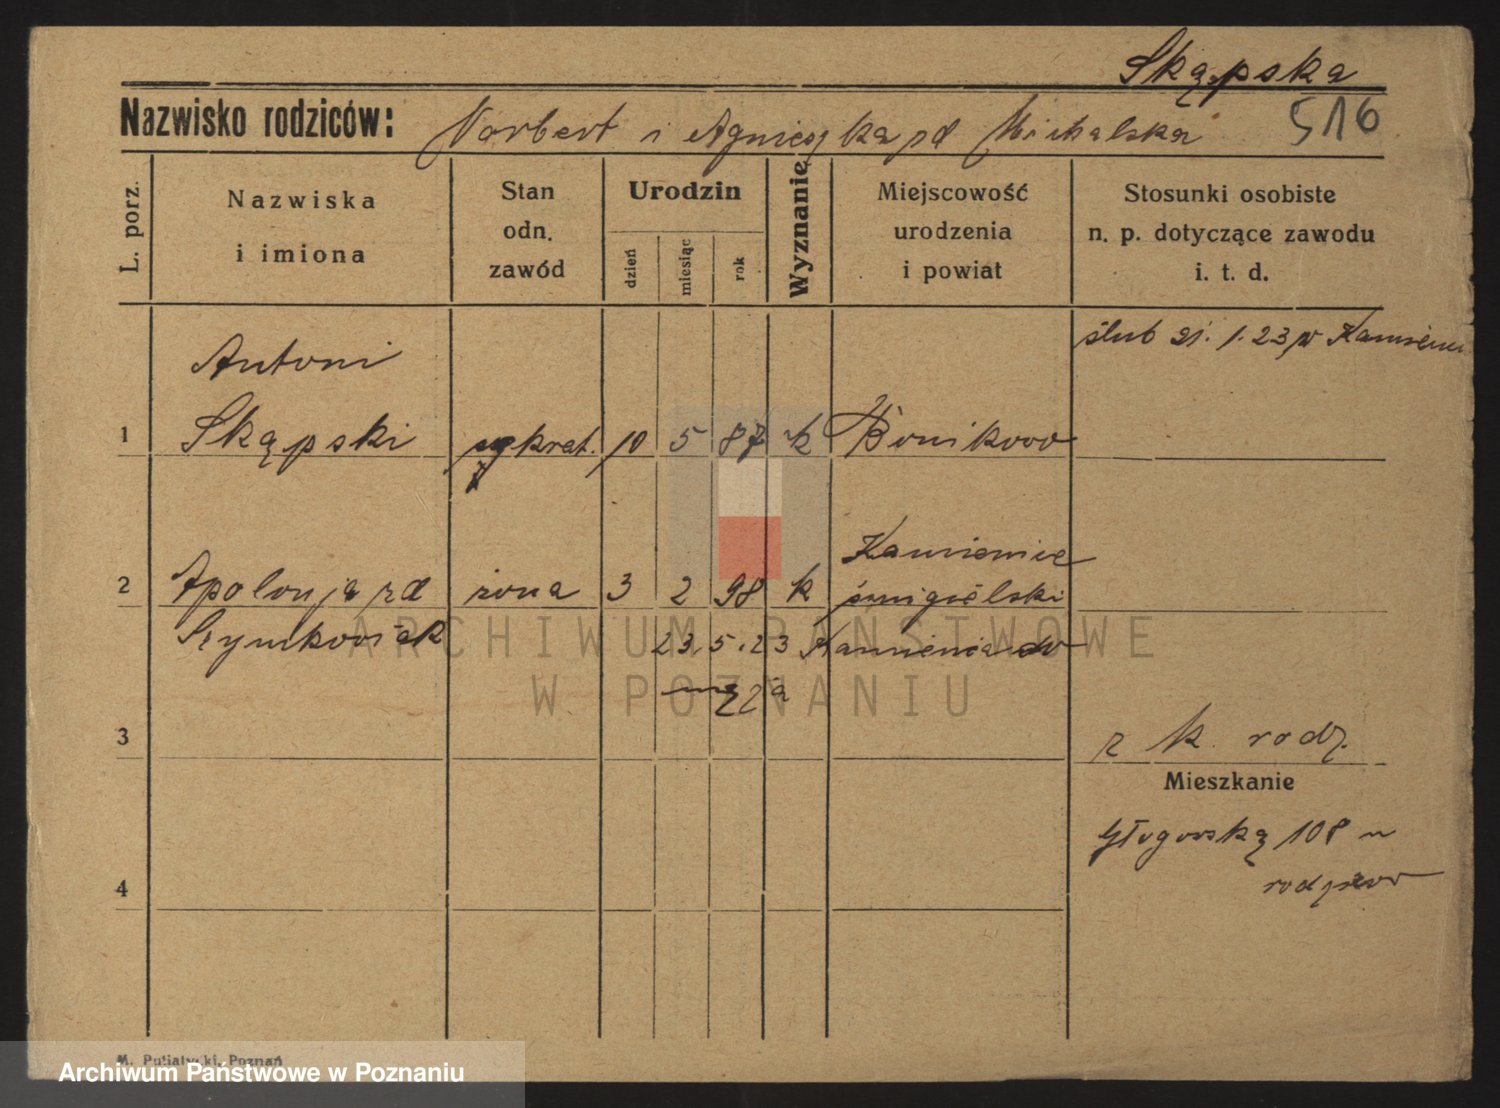 Skąpska
Nazwisko rodziców: Norbert i Agnieszka zd Michalska 516
L. porz.
Nazwiska
i imiona
Stan
odn.
zawód
Urodzin
dzień
miesiąc
rok
Wyznanie
Miejscowość
urodzenia
i powiat
Stosunki osobiste
n. p. dotyczące zawodu
i. t. d.
ślub 21. 1. 23 w
Antoni
1 Skąpski 10 5 87 k Bonikowo
2 Apolonja zd żona 3 2 98 k
śmigielski
Szymkowiak 23. 5. 23
męża
ARCHIWUM PAŃSTWOWE
W POZNANIU
3
z k. rodz.
Mieszkanie
Głogowską 108
4
M. Putiatycki, Poznań
Archiwum Państwowe w Poznaniu